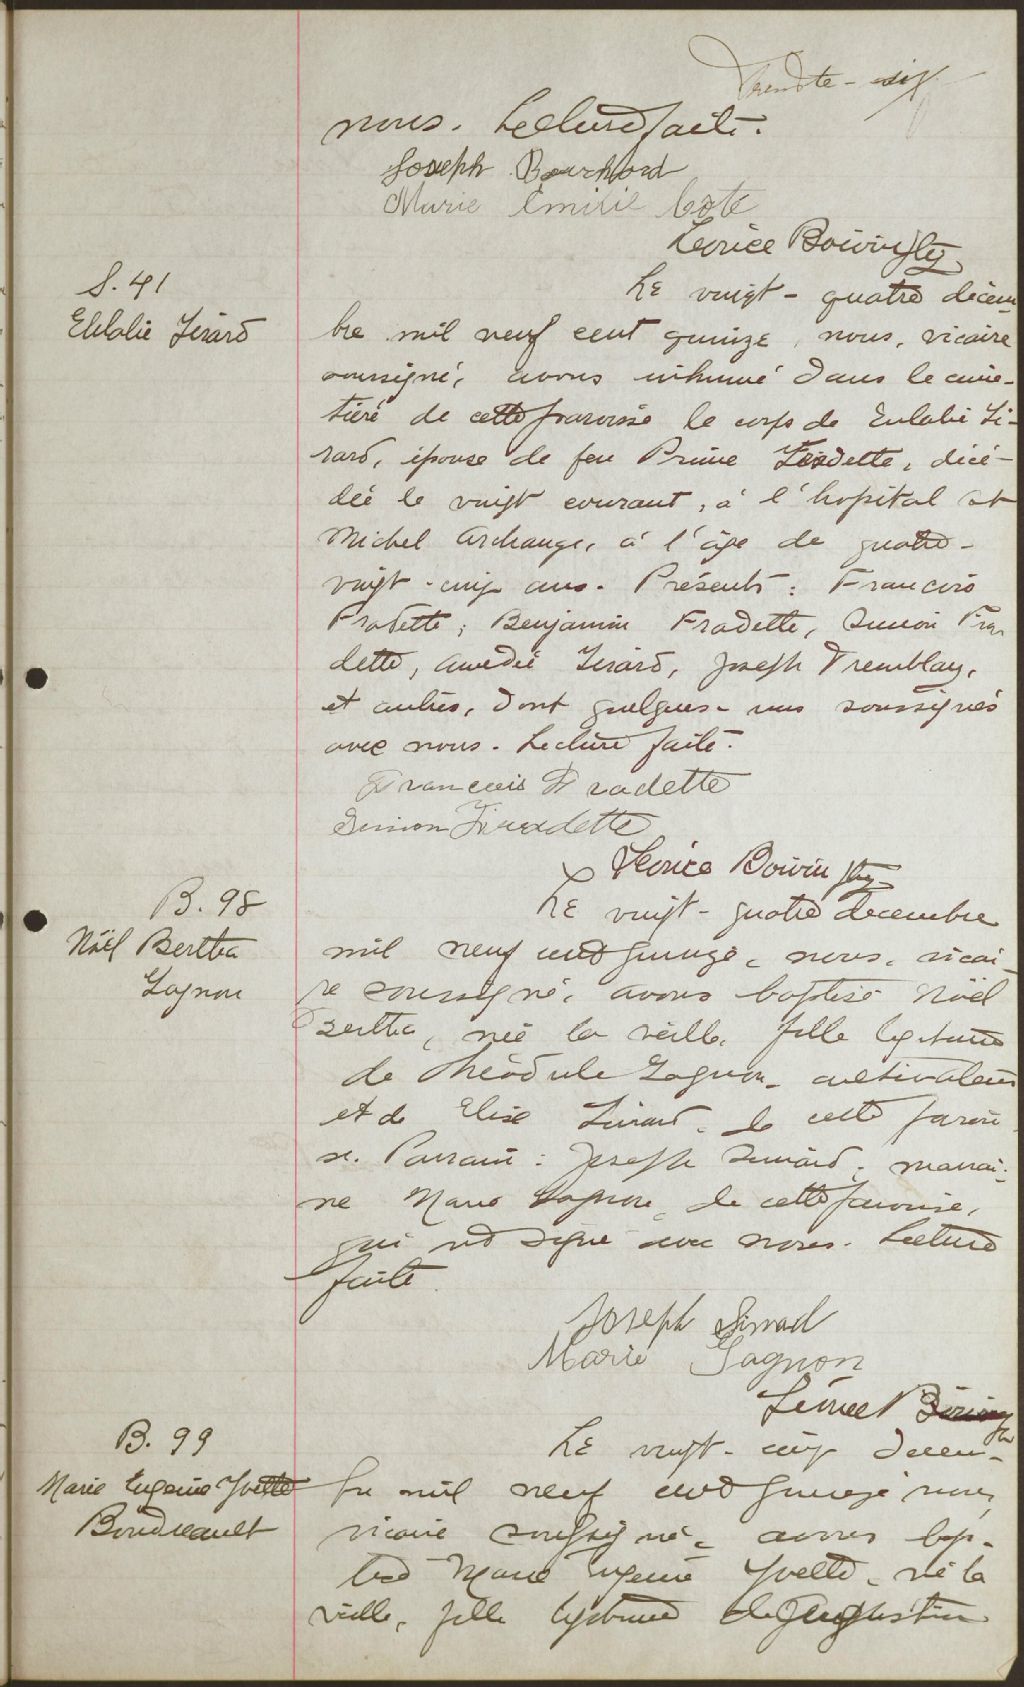 Trente-six
nous. Lecture faite.
Joseph Bouchard
Marie Emilie Cote
Léonce Boivin ptre
S. 41
Eulalie Girard
Le vingt-quatre décem-
bre mil neuf cent quinze, nous, vicaire
soussigné, avons inhumé dans le cime-
tière de cette paroisse le corps de Eulalie Gi-
rard, épouse de feu Prime Fradette, décé-
dée le vingt courant, à l'hopital st
Michel Archange, à l'âge de quatre-
vingt-cinq ans. Présents: Francois
Fradette, Benjamin Fradette, Simon Fra
dette, Amedée Girard, Joseph Tremblay,
et autres, dont quelques-uns soussignés
avec nous. Lecture faite.
Francois Fradette
Simon Fradette
Léonce Boivin ptre
B. 98
Noël Bertha
Gagnon
Le vingt-quatre decembre
mil neuf cent quinze, nous, vicai-
re soussigné, avons baptisé Noël
Bertha, née la veille, fille legitime
de Théodule Gagnon, cultivateur
et de Elise Simard, de cette parois-
se. Parrain: Joseph Simard; marrai-
ne Marie Gagnon, de cette paroisse,
qui ont signé avec nous. Lecture
faite.
Joseph Simard
Marie Gagnon
Léonce Boivin ptre
B. 99
Marie Eugenie Yvette
Boudreault
Le vingt-cinq décem-
bre mil neuf cent quinze nous,
vicaire soussigné, avons bap-
tisé Marie Eugenie Yvette, née la
veille, fille legitime de Augustin